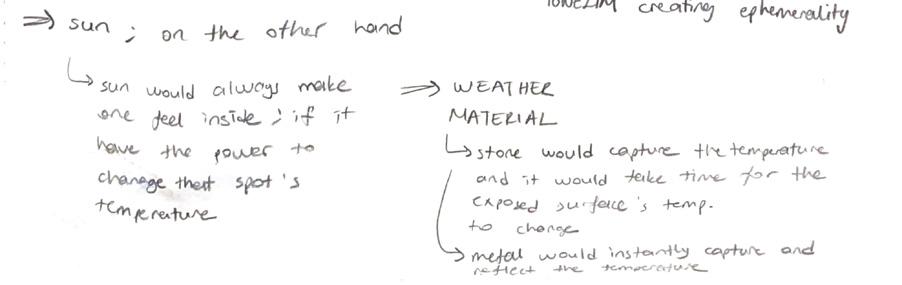 creating ephemerality
⇒ sun ; on the other hand
↳ sun would always make
one feel inside ; if it
have the power to
chanage that spot's
temperature
⇒ WEATHER
MATERIAL
↳ stone would capture the temperature
and it would take time for the
exposed surface's temp.
to change
↳ metal would instantly capture and
reflect the temperature